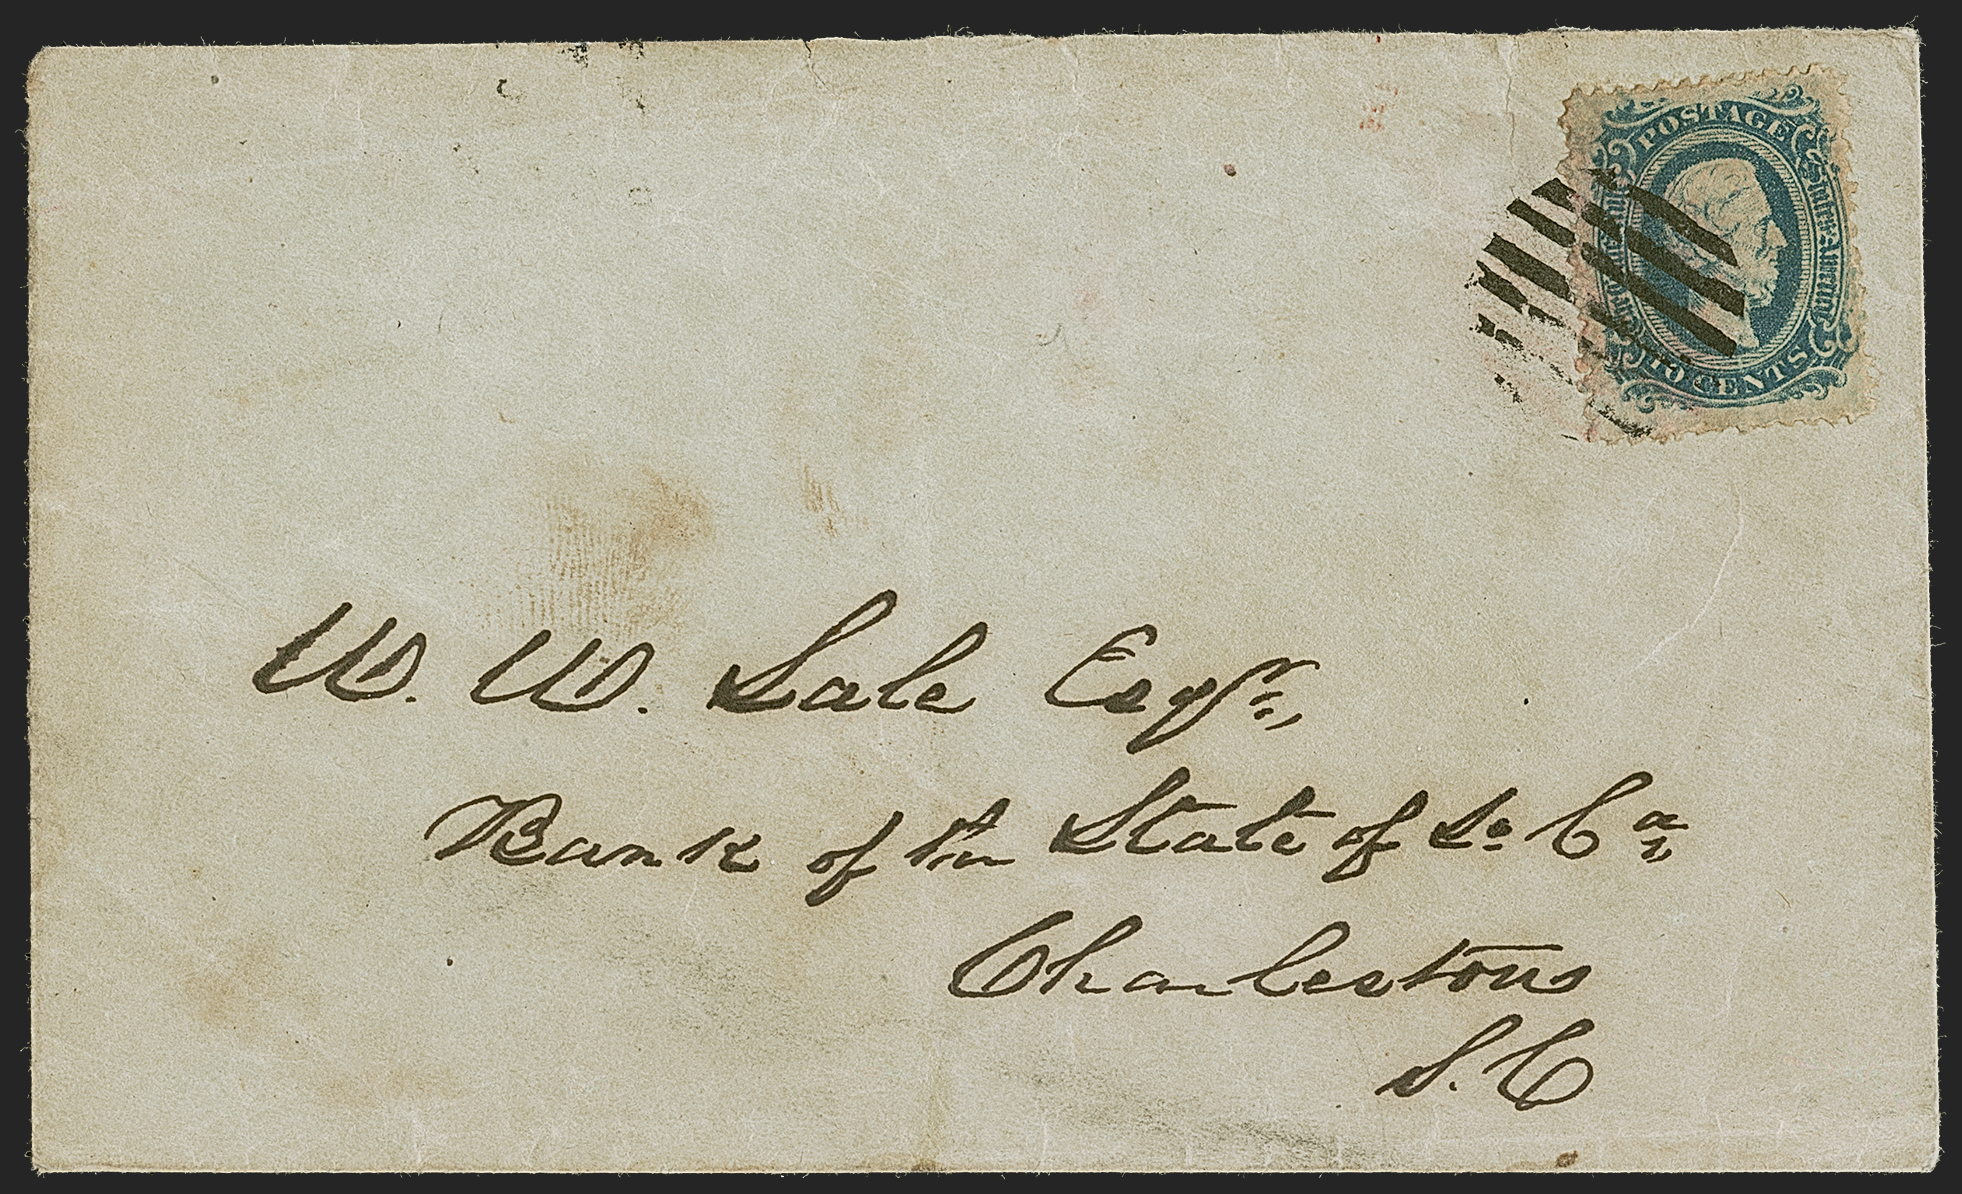 POSTAGE
CENTS
W. W. Sale Esqr.,
Bank of the State of So Ca,
Charleston
S. C